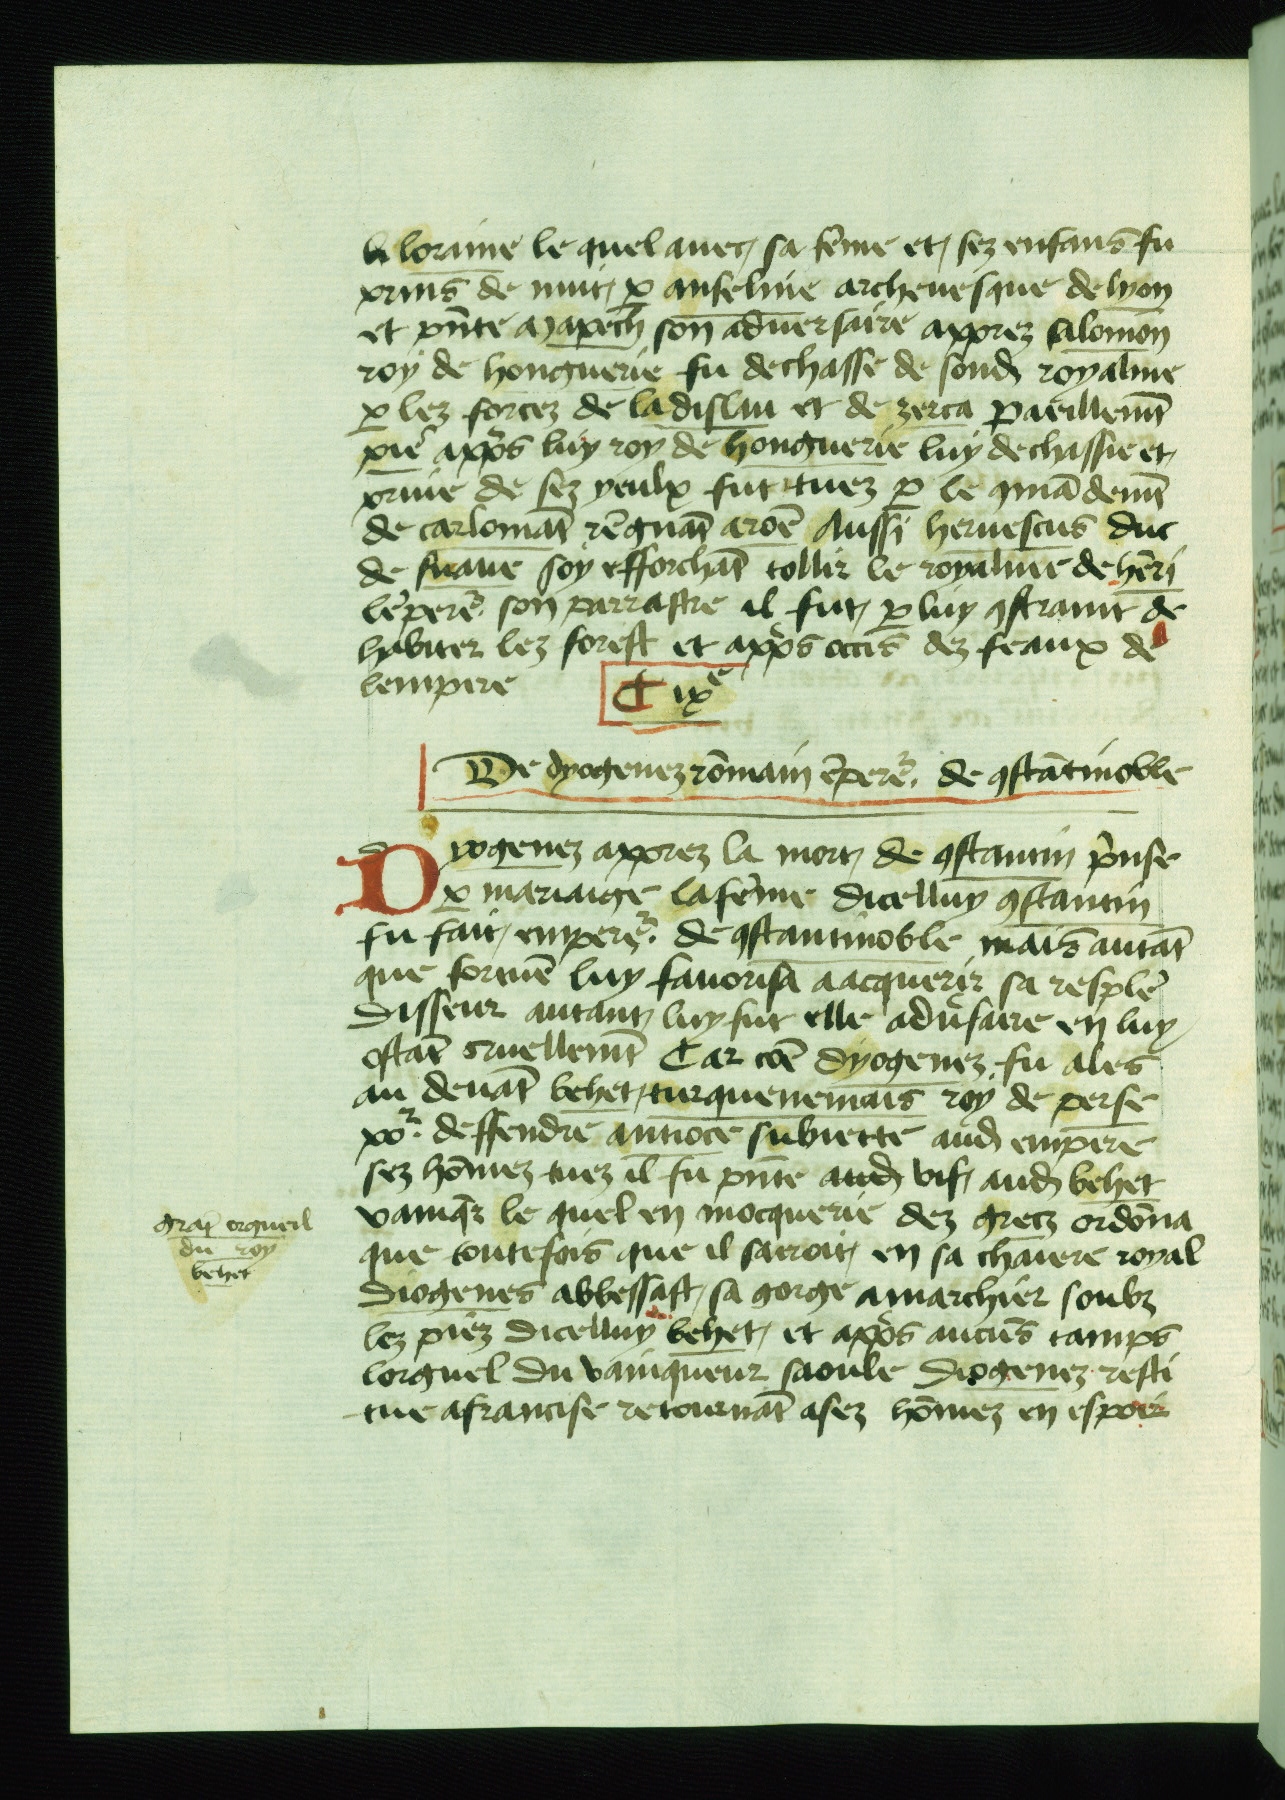 loraine le quel avec sa fēme et sez enfans fu
prins de nuit p anselme archevesque de lyon
et pnte son adversaire apprez salomon
roy de honguerie fu dechasse de sond royalme
p lez forcez de ladislau et de zerta pareillemt
pie apps luy roy de honguerie luy dechassie et
prive de sez yeulx fut tuez p le qmādemt
de carlomāt rēgnāt aroē Aussi hervescus duc
de suave soy efforchāt tollir le royalme de hēri
lēpere son parrastre il fut p luy qstraint de
habiter lez forest et apps occis dez feaux de
lempere
C ixe
De dyogenez rōmain ēpere de qstātinoble
Dyogenez apprez la mort de qstantin pnse
p mariaige la fēme dicelluy qstantin
fu fait empere de qstantinoble mais autāt
que fortuē luy favorisa a acquerir sa resplē
disseur autant luy fut elle advsaire en luy
ostāt cruellemt Car cōe dyogenez fu ales
au devāt behet turquenemais roy de perse
por deffendre antioce subiette aud empere
sez hōmez tuez il fu pnte aud vif aud behet
vainqr le quel en mocquerie dez grecz ordōna
que toutefois que il sarroit en sa chaiere royal
diogenes abbessast sa gorge a marchier soubz
lez piez dicelluy behet et apps aucūs tamps
lorguel du vainqueur saoule diogenez resti
tue a francise retournāt a sez hōmez en espoir
grāt orgueil
du roy
behet